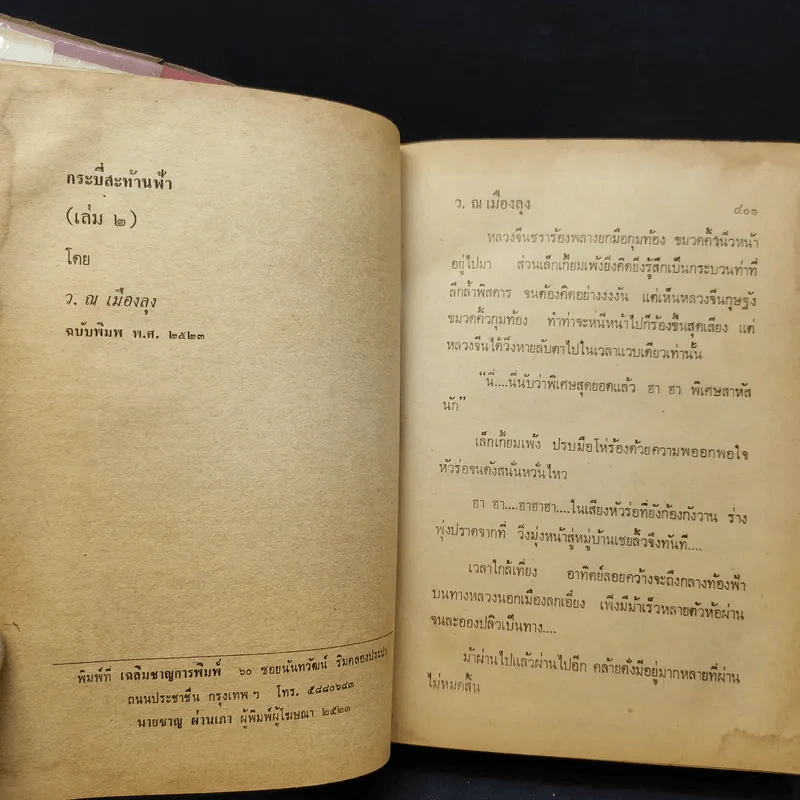 กระบี่สะท้านฟ้า
(เล่ม ๒)
โดย
ว. ณ เมืองลุง
ฉบับพิมพ พ.ศ. ๒๕๒๓
พิมพ์ที่ เฉลิมชาญการพิมพ์ ๖๐ ซอยนันทวัฒน์ ริมคลองประปา
ถนนประชาชื่น กรุงเทพ ฯ โทร. ๕๘๘๐๖๘๓
นายชาญ ผ่านเภา ผู้พิมพ์ผู้โฆษณา ๒๕๒๓
ว. ณ เมืองลุง
๔๐๑
หลวงจีนชราร้องพลางยกมือกุมท้อง ขมวดคิ้วนิ่วหน้า
อยู่ไปมา ส่วนเล็กเกี้ยมเพ้งยิ่งคิดยิ่งรู้สึกเป็นกระบวนท่าที่
ลึกล้ำพิสดาร จนต้องคิดอย่างงงงัน แต่เห็นหลวงจีนกุษฐัง
ขมวดคิ้วกุมท้อง ทำท่าจะหนีหน้าไปก็ร้องขึ้นสุดเสียง แต่
หลวงจีนได้วิ่งหายลับตาไปในเวลาแวบเดียวเท่านั้น
“นี่....นี่นับว่าพิเศษสุดยอดแล้ว ฮา ฮา พิเศษสาหัส
นัก”
เล็กเกี้ยมเพ้ง ปรบมือโห่ร้องด้วยความพออกพอใจ
หัวร่อจนดังสนั่นหวั่นไหว
ฮา ฮา....ฮาฮาฮา....ในเสียงหัวร่อที่ยังก้องกังวาน ร่าง
พุ่งปราดจากที่ วิ่งมุ่งหน้าสู่หมู่บ้านเชยลิ้วจึงทันที....
เวลาใกล้เที่ยง อาทิตย์ลอยคว้างจะถึงกลางท้องฟ้า
บนทางหลวงนอกเมืองลกเอี้ยง เพิ่งมีม้าเร็วหลายตัวห้อผ่าน
จนละอองปลิวเป็นทาง....
ม้าผ่านไปแล้วผ่านไปอีก คล้ายดั่งมีอยู่มากหลายที่ผ่าน
ไม่หมดสิ้น